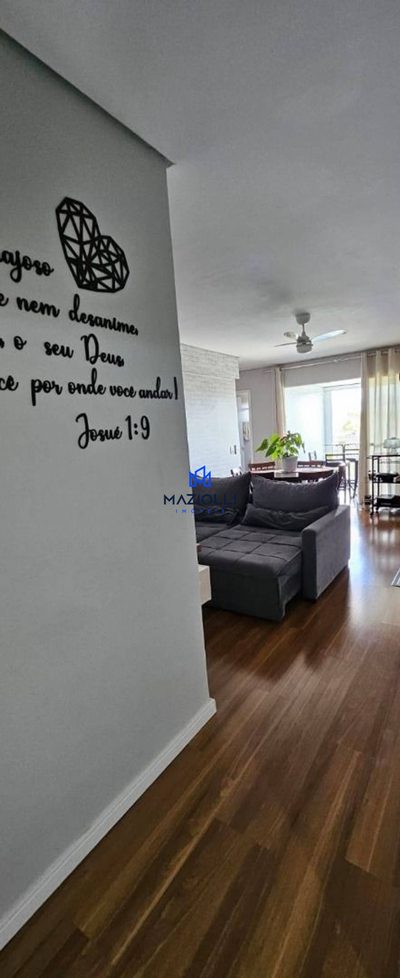 ajoso
e nem desanime,
o seu Deus
cê por onde você andar!
Josué 1:9
MAZIOLLI